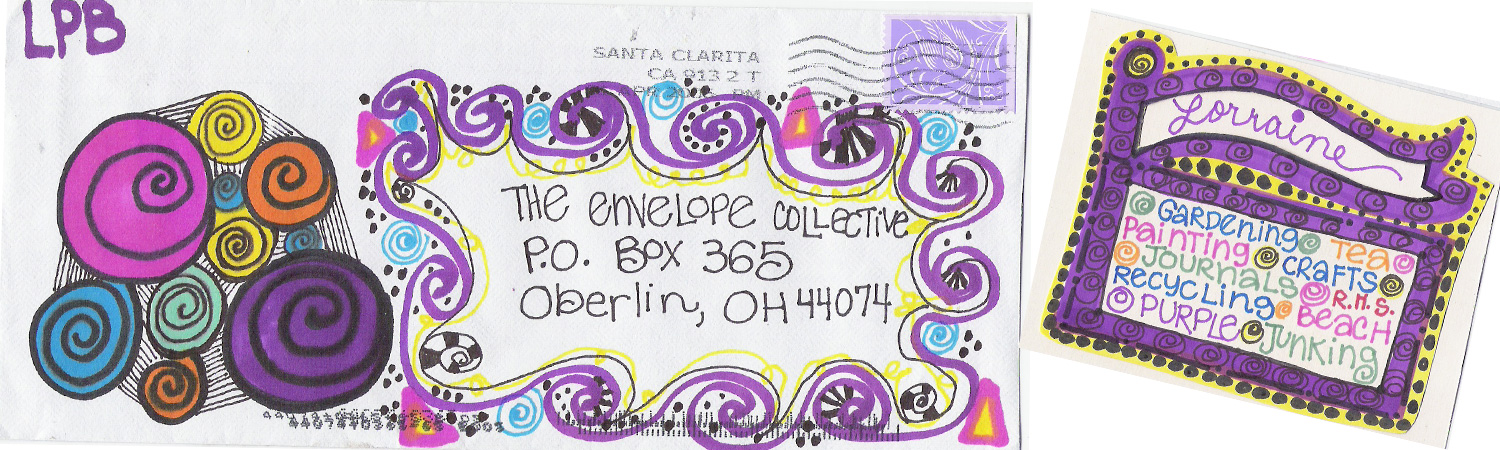 LPB
SANTA CLARITA
CA 913 2 T
PM
THE ENVELOPE COLLECTIVE
P.O. BOX 365
Oberlin, OH 44074
Lorraine
GARDENING TEA
Painting CRAFTS
JOURNALS R.M.S.
RECYCLING BEACH
PURPLE JUNKING